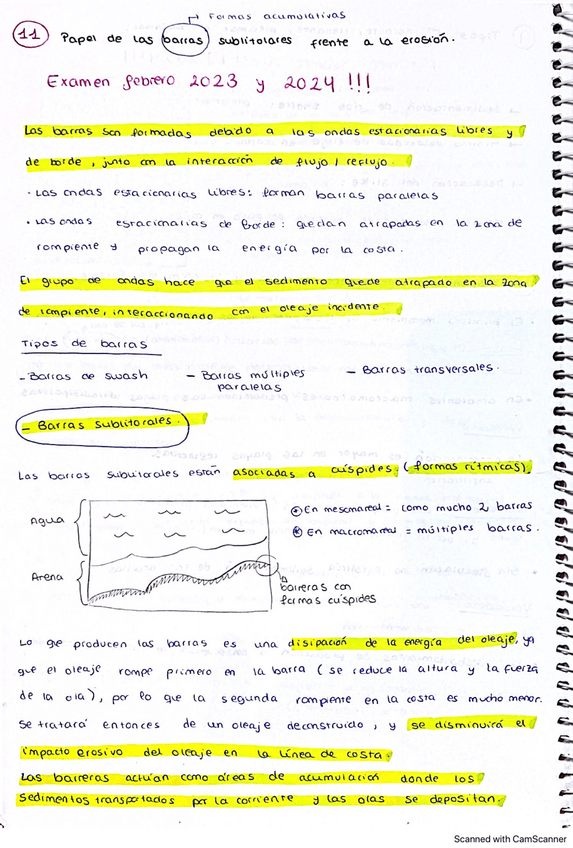 Formas acumulativas
11 Papel de las barras sublitolares frente a la erosión.
Examen febrero 2023 y 2024 !!!
Las barras son formadas debido a las ondas estacionarias libres y
de borde, junto con la interacción de flujo / reflujo.
· Las ondas estacionarias libres: forman barras paralelas
· Las ondas estacionarias de borde: quedan atrapadas en la zona de
rompiente y propagan la energía por la costa.
El grupo de ondas hace que el sedimento quede atrapado en la zona
de rompiente, interaccionando con el oleaje incidente
Tipos de barras
- Barras de swash - Barras múltiples - Barras transversales.
paralelas
- Barras sublitorales.
Las barras sublitorales están asociadas a cúspides, (formas rítmicas).
Agua
Arena
En mesomareal = como mucho 2 barras
En macromareal = múltiples barras.
barreras con
formas cúspides
Lo que producen las barras es una disipación de la energía del oleaje, ya
que el oleaje rompe primero en la barra (se reduce la altura y la fuerza
de la ola), por lo que la segunda rompiente en la costa es mucho menor.
Se tratará entonces de un oleaje deconstruido, y se disminuirá el
impacto erosivo del oleaje en la línea de costa.
Las barreras actúan como áreas de acumulación donde los
sedimentos transportados por la corriente y las olas se depositan.
Scanned with CamScanner